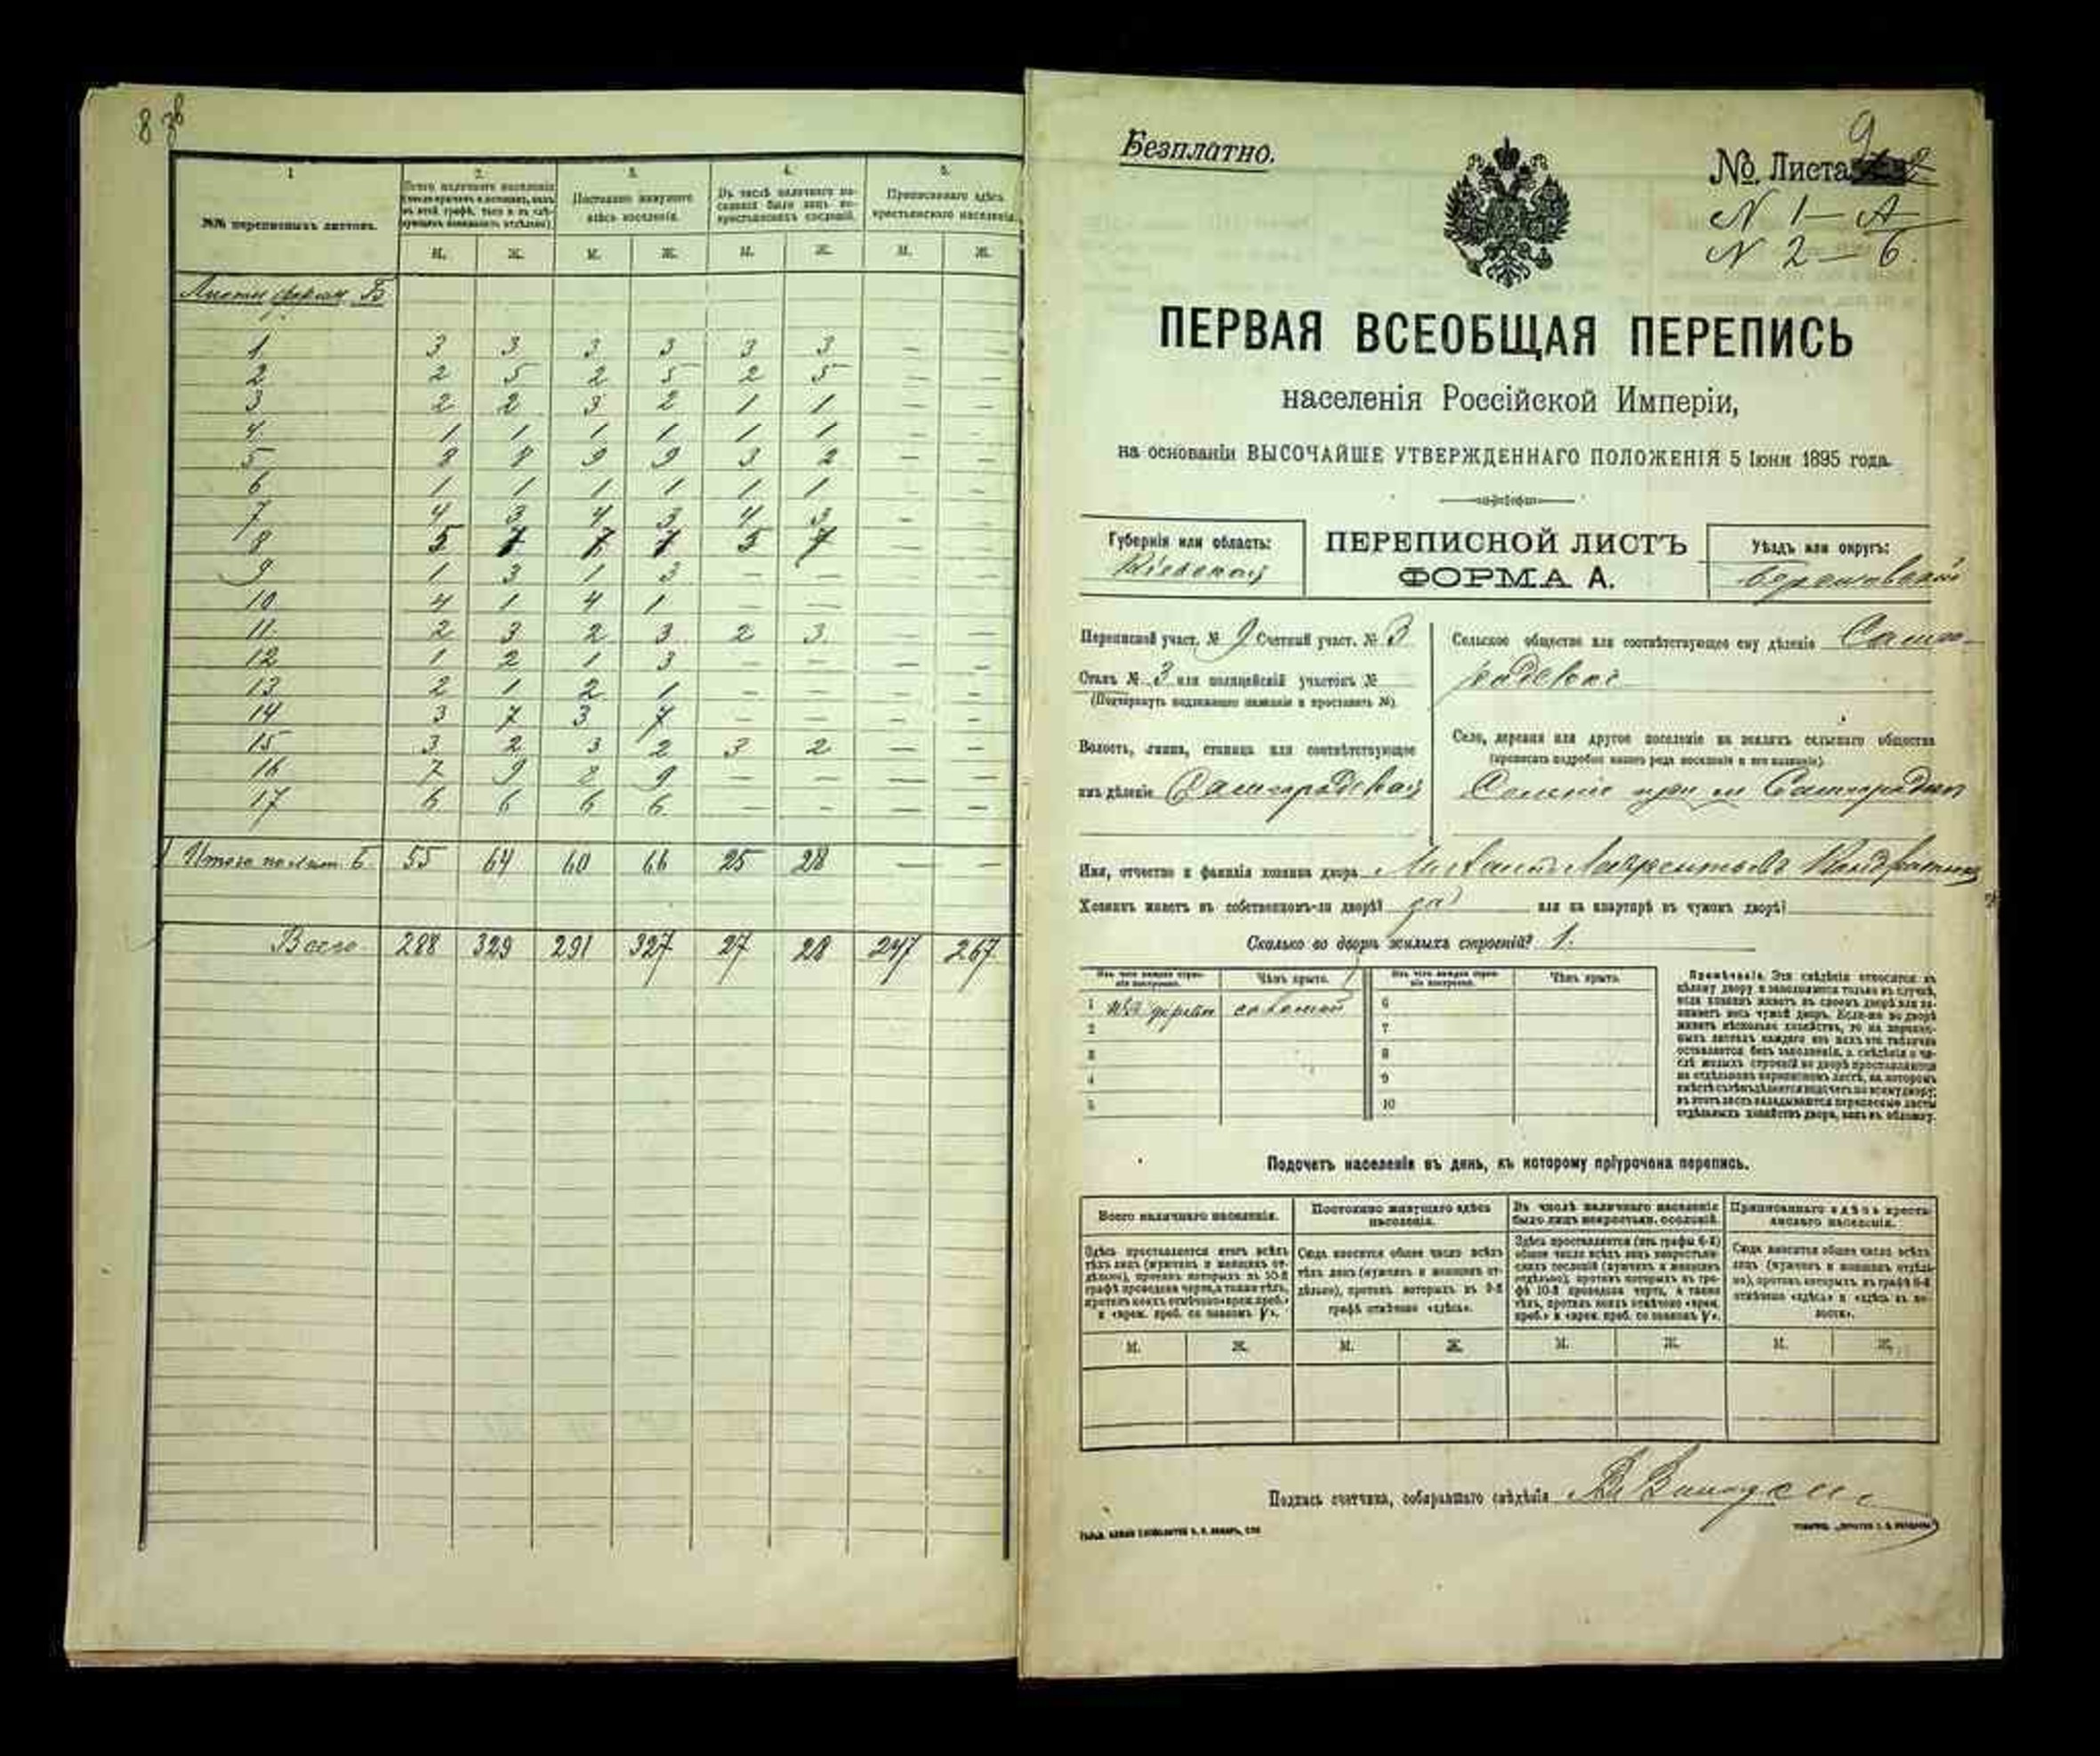 8 зв
1 2. 3. 4. 5.
№№ переписныхъ листовъ.
Всего наличнаго населенія
Постоянно живущаго здѣсь населенія.
Въ числѣ наличнаго населенія было лицъ некрестьянскихъ сословій.
Приписаннаго здѣсь крестьянскаго населенія.
М. Ж. М. Ж. М. Ж. М. Ж.
Листы формы Б
1 3 3 3 3 3 3 — —
2 2 5 2 5 2 5 — —
3 2 2 3 2 1 1 — —
4 1 1 1 1 1 1 — —
5 8 8 9 9 3 2 — —
6 1 1 1 1 1 1 — —
7 4 3 4 3 4 3 — —
8 5 7 7 7 5 7 — —
9 1 3 1 3 — — — —
10 4 1 4 1 — — — —
11 2 3 2 3 2 3 — —
12 1 2 1 3 — — — —
13 2 1 2 1 — — — —
14 3 7 3 7 — — — —
15 3 2 3 2 3 2 — —
16 7 9 8 9 — — — —
17 6 6 6 6 — — — —
Итого по лист. Б. 55 64 60 66 25 28 — —
Всего 288 329 291 327 27 28 247 267
9
Безплатно.
№ Листа
N 1 — А
N 2 — Б.
ПЕРВАЯ ВСЕОБЩАЯ ПЕРЕПИСЬ
населенія Россійской Имперіи,
на основаніи ВЫСОЧАЙШЕ УТВЕРЖДЕННАГО ПОЛОЖЕНІЯ 5 Іюня 1895 года.
Губернія или область:
Кіевская
ПЕРЕПИСНОЙ ЛИСТЪ
ФОРМА А.
Уѣздъ или округъ:
Переписной участ. № 9 Счетный участ. № 3
Станъ № 3 или полицейскій участокъ №
(Подчеркнуть подлежащее названіе и проставить №).
Волость, гмина, станица или соотвѣтствующее
имъ дѣленіе
Сельское общество или соотвѣтствующее ему дѣленіе
Село, деревня или другое поселеніе на земляхъ сельскаго общества
(прописать подробно какого рода поселеніе и его названіе).
Имя, отчество и фамилія хозяина двора
Хозяинъ живетъ въ собственномъ-ли дворѣ? да или на квартирѣ въ чужомъ дворѣ?
Сколько во дворѣ жилыхъ строеній? 1.
Изъ чего каждое строеніе построено. Чѣмъ крыто. Изъ чего каждое строеніе построено. Чѣмъ крыто.
1 изъ дерева соломой 6
2 7
3 8
4 9
5 10
Примѣчаніе. Эти свѣдѣнія относятся къ
цѣлому двору и заполняются только въ случаѣ,
если хозяинъ живетъ въ своемъ дворѣ или занимаетъ весь чужой дворъ. Если-же во дворѣ
живетъ нѣсколько хозяйствъ, то на переписныхъ листахъ каждаго изъ нихъ эта табличка
оставляется безъ заполненія, а свѣдѣнія о числѣ жилыхъ строеній во дворѣ проставляются
на отдѣльномъ переписномъ листѣ, на которомъ
вмѣстѣ съ тѣмъ дѣлается подсчетъ по всему двору;
въ этотъ листъ вкладываются переписные листы
отдѣльныхъ хозяйствъ двора, какъ въ обложку.
Подсчетъ населенія въ день, къ которому пріурочена перепись.
Всего наличнаго населенія.
Постоянно живущаго здѣсь населенія.
Въ числѣ наличнаго населенія было лицъ некрестьян. сословій.
Приписаннаго здѣсь крестьянскаго населенія.
Здѣсь проставляется итогъ всѣхъ тѣхъ лицъ (мужчинъ и женщинъ отдѣльно), противъ которыхъ въ 10-й графѣ проведена черта, а также тѣхъ, противъ коихъ отмѣчено «врем. преб.» и «врем. преб. со знакомъ V».
Сюда вносится общее число всѣхъ тѣхъ лицъ (мужчинъ и женщинъ отдѣльно), противъ которыхъ въ 9-й графѣ отмѣчено «здѣсь».
Здѣсь проставляется (изъ графы 6-й) общее число всѣхъ лицъ некрестьянскихъ сословій (мужчинъ и женщинъ отдѣльно), противъ которыхъ въ графѣ 10-й проведена черта, а также тѣхъ, противъ коихъ отмѣчено «врем. преб.» и «врем. преб. со знакомъ V».
Сюда вносится общее число всѣхъ лицъ (мужчинъ и женщинъ отдѣльно), противъ которыхъ въ графѣ 8-й отмѣчено «здѣсь» и «здѣсь въ волости».
М. Ж. М. Ж. М. Ж. М. Ж.
Подпись счетчика, собиравшаго свѣдѣнія